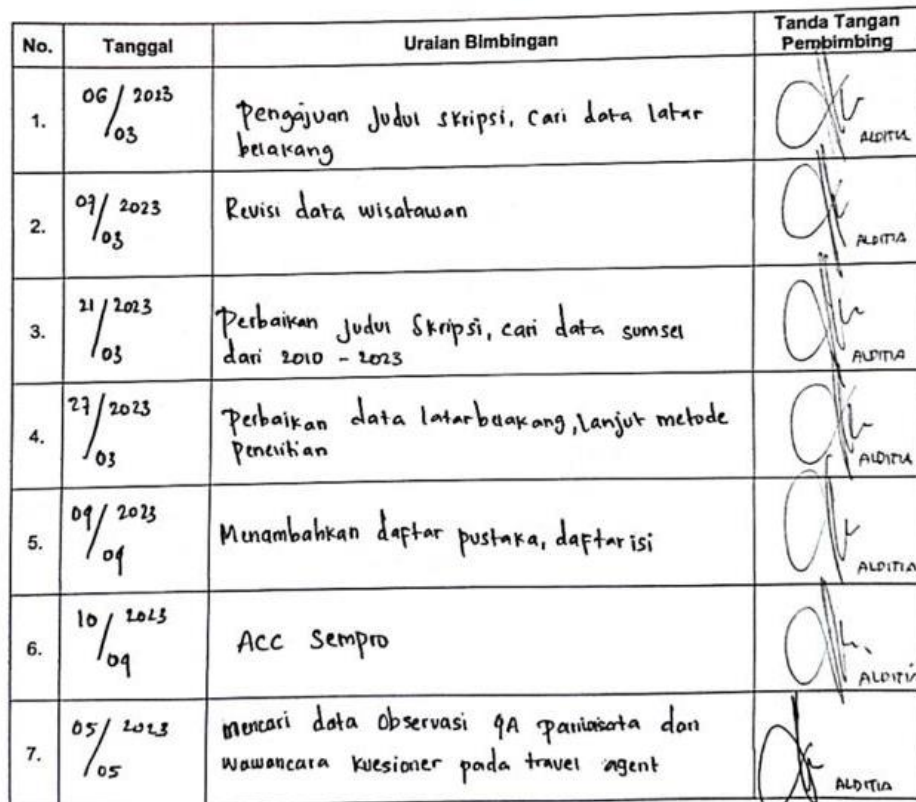 No. Tanggal Uraian Bimbingan Tanda Tangan Pembimbing
1. 06/2023/03 Pengajuan Judul Skripsi, Cari data latar
belakang
ALDITIA
2. 07/2023/03 Revisi data wisatawan
ALDITIA
3. 21/2023/03 Perbaikan Judul Skripsi, cari data sumsel
dari 2010 - 2023
ALDITIA
4. 27/2023/03 Perbaikan data latarbelakang, Lanjut metode
Penelitian
ALDITIA
5. 2023 Menambahkan daftar pustaka, daftar isi
ALDITIA
6. 10/2023 ACC Sempro
ALDITIA
7. 05/2023/05 mencari data observasi 4A pariwisata dan
wawancara kuesioner pada travel agent
ALDITIA